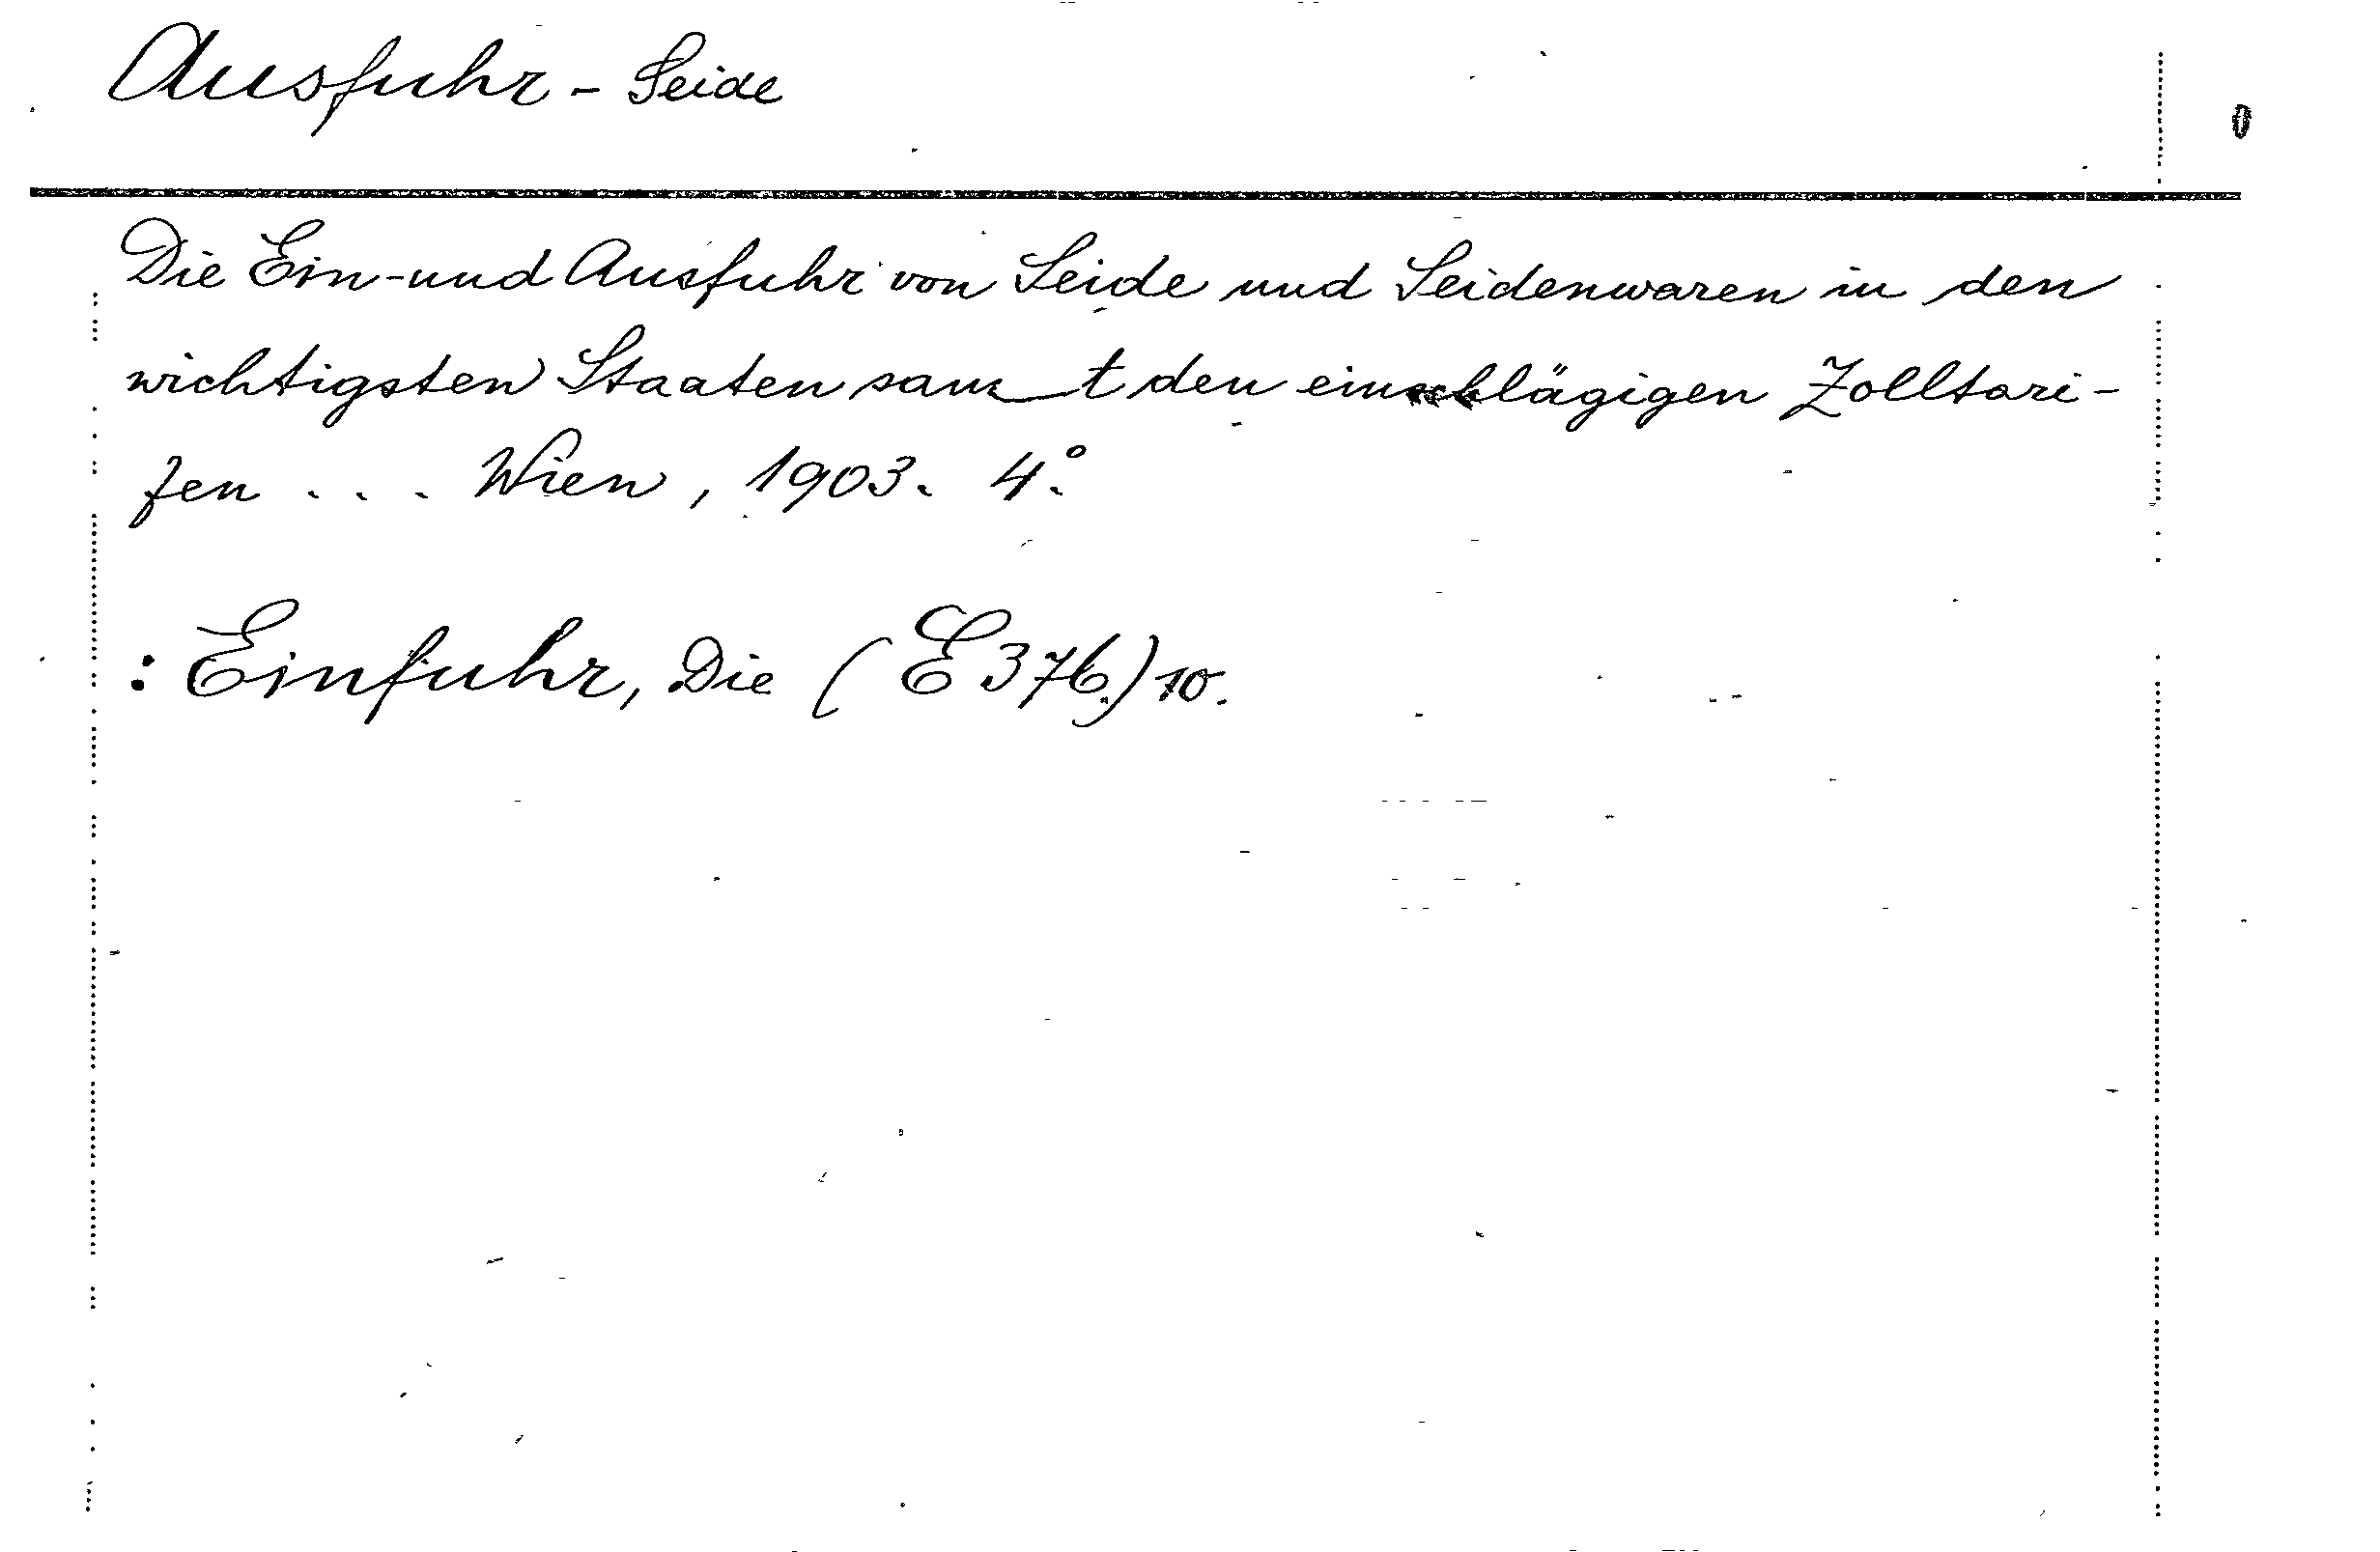 Ausfuhr - Seide
Die Ein- und Ausfuhr von Seide und Seidenwaren in den
wichtigsten Staaten samt den einschlägigen Zolltari-
fen . . . Wien, 1903. 4°.
: Einfuhr, Die (E 376.) 10.